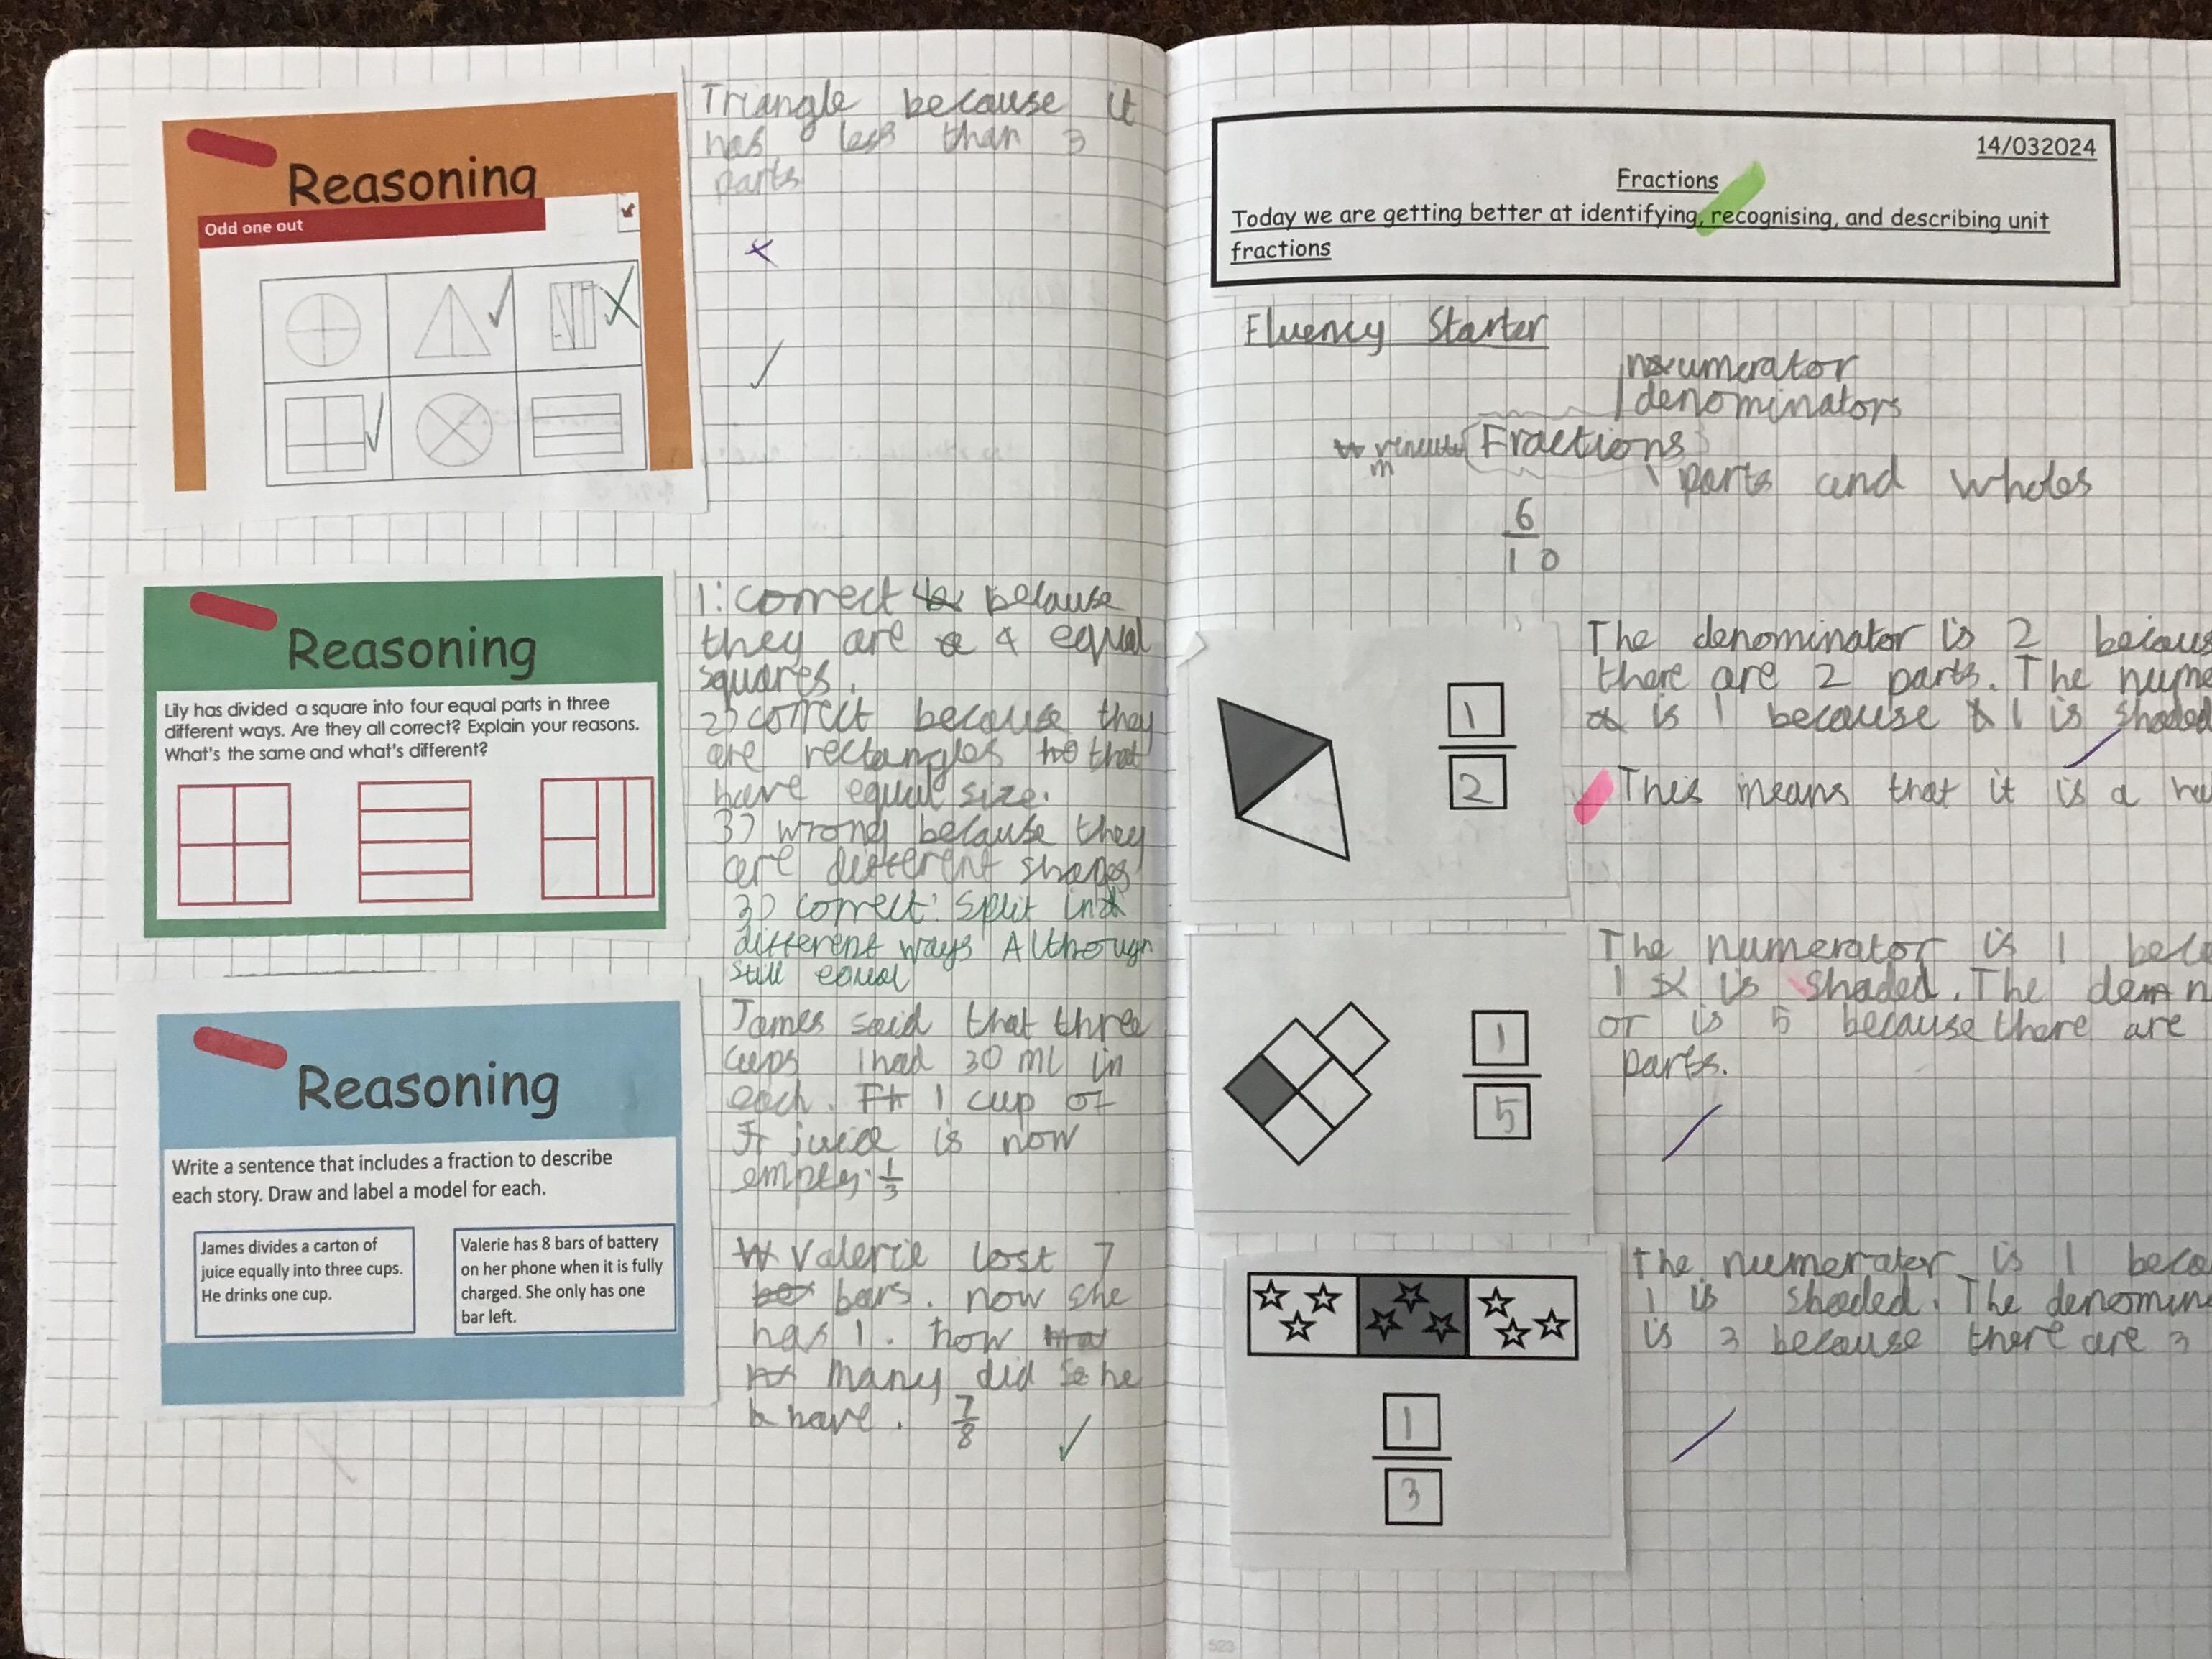 Reasoning
Odd one out
Triangle because it
has less than 3
parts
Reasoning
Lily has divided a square into four equal parts in three
different ways. Are they all correct? Explain your reasons.
What's the same and what's different?
1: correct because
they are 4 equal
squares.
2) correct because they
are rectangles that
have equal size.
3) wrong because they
are different shapes
3) correct: split in
different ways Although
still equal
Reasoning
Write a sentence that includes a fraction to describe
each story. Draw and label a model for each.
James divides a carton of
juice equally into three cups.
He drinks one cup.
Valerie has 8 bars of battery
on her phone when it is fully
charged. She only has one
bar left.
James said that three
cups had 30 ml in
each. 1 cup of
juice is now
empty. 1/3
Valerie lost 7
bars. now she
has 1. how
many did she
have. 7/8
14/032024
Fractions
Today we are getting better at identifying, recognising, and describing unit
fractions
Fluency Starter
numerator
denominators
Fractions
parts and wholes
6
10
1
2
The denominator is 2 becaus
there are 2 parts. The nume
is 1 because 1 is shaded
This means that it is a
1
5
The numerator is 1 bec
1 is shaded. The
or is 5 because there are
parts.
The numerator is 1 beca
1 is shaded. The denomin
is 3 because there are 3
1
3
523